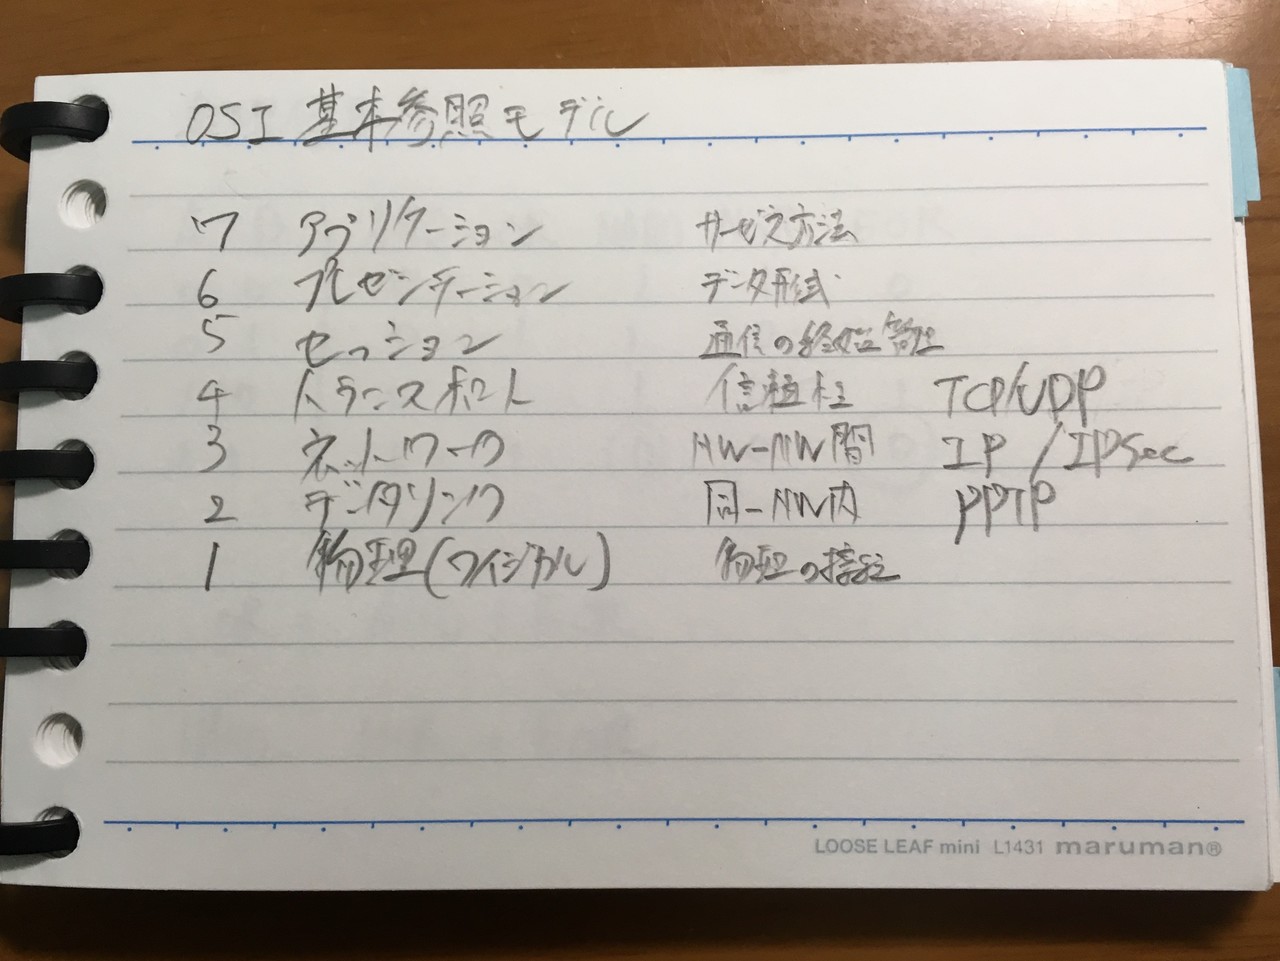 OSI 基本参照モデル
7 アプリケーション サービス方法
6 プレゼンテーション データ形式
5 セッション 通信の終始管理
4 トランスポート 信頼性 TCP/UDP
3 ネットワーク NW-NW間 IP / IPSec
2 データリンク 同一NW内 PPTP
1 物理(フィジカル) 物理の接続
LOOSE LEAF mini L1431 maruman®